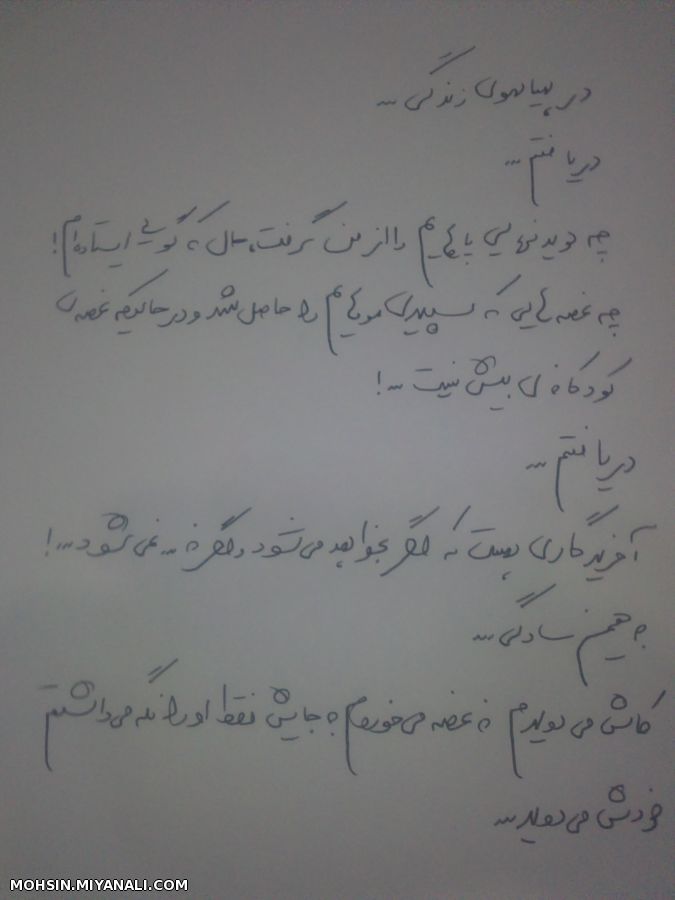 در هیاهوی زندگی...
دریافتم...
چه دویدنهایی پاهایم را از من گرفت، حال که گویی ایستاده‌ام!
چه غصه‌هایی که سپیدی موهایم را حاصل شد و در حالیکه غصه‌ی
کودکانه‌ای بیش نیست...!
دریافتم...
آفریدگاری هست که اگر بخواهد می‌شود و اگر نه... نمی‌شود...!
به همین سادگی...
کاش می‌دویدم نه غصه می‌خوردم به جایش فقط او را نگه می‌داشتم
خودش می‌دوید...
MOHSIN.MIYANALI.COM